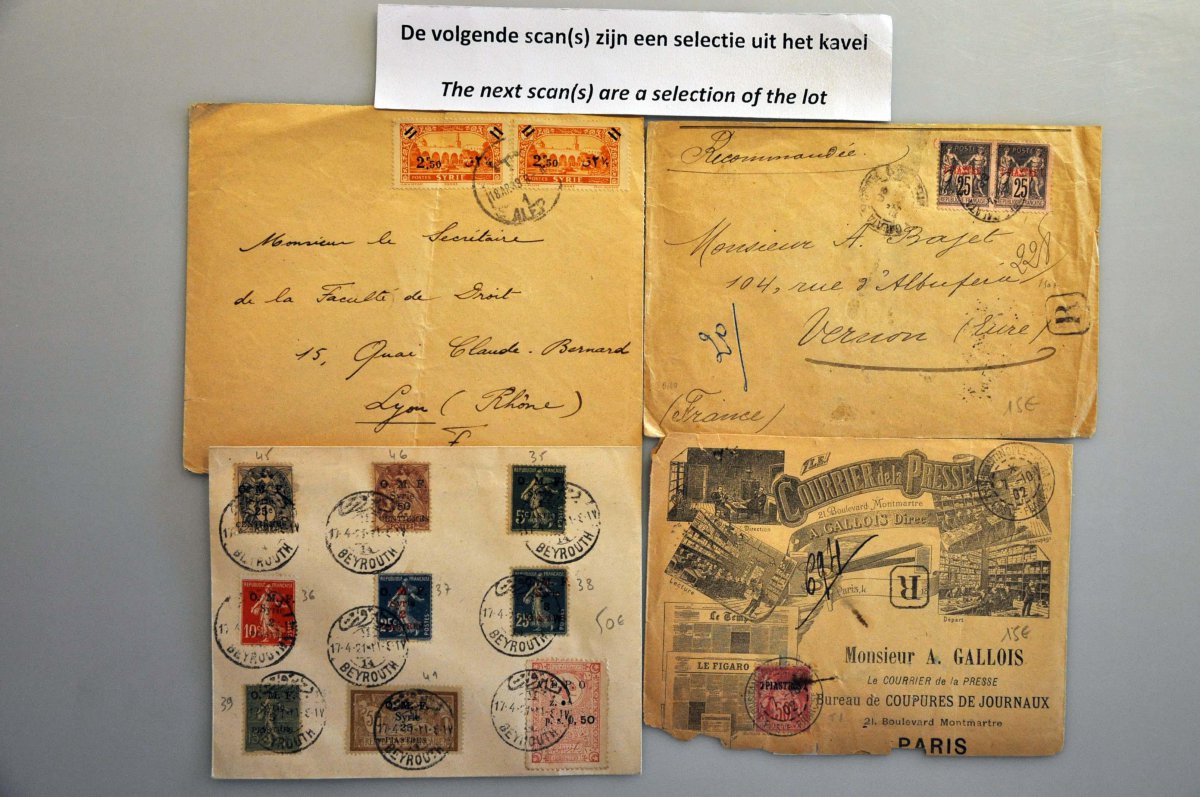 De volgende scan(s) zijn een selectie uit het kavel
The next scan(s) are a selection of the lot
2.50
POSTES SYRIE
2.50
POSTES SYRIE
ALEP
Monsieur le Secrétaire
de la Faculté de Droit
15, Quai Claude-Bernard
Lyon (Rhône)
Recommandée
POSTE
25
REPUBLIQUE FRANCAISE
POSTE
25
REPUBLIQUE FRANCAISE
Monsieur A. Bajet
228
104, rue d'Albufera
Vernon (Eure)
R
20
(France)
15€
45
46
35
O. M. F.
Syrie
50
5c
17-4-21
BEYROUTH
BEYROUTH
BEYROUTH
36
37
38
50€
REPUBLIQUE FRANÇAISE
10c
25c
POSTES
25c
17-4-21
BEYROUTH
BEYROUTH
BEYROUTH
39
41
O. M. F.
O. M. F.
Syrie
25
PIASTRES
0,50
BEYROUTH
BEYROUTH
BEYROUTH
LE
COURRIER de la PRESSE
21 Boulevard Montmartre
A. GALLOIS
Direction
Lecture
Paris, le
694
R
Départ
02
Le Temps
LE FIGARO
15€
Monsieur A. GALLOIS
Le COURRIER de la PRESSE
Bureau de COUPURES DE JOURNAUX
21, Boulevard Montmartre
PARIS